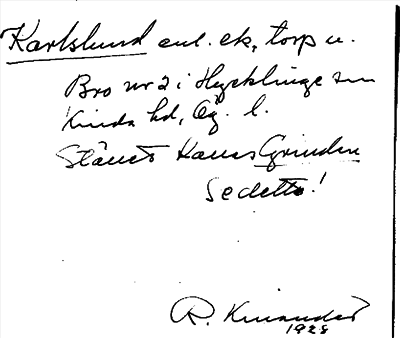 Karlslund enl. ek, torp u.
Bro nr 2 i Hycklinge sn
Kinda hd, Ög. l.
Stället kallas Grinden
Se detta!
R. Kinander
1928